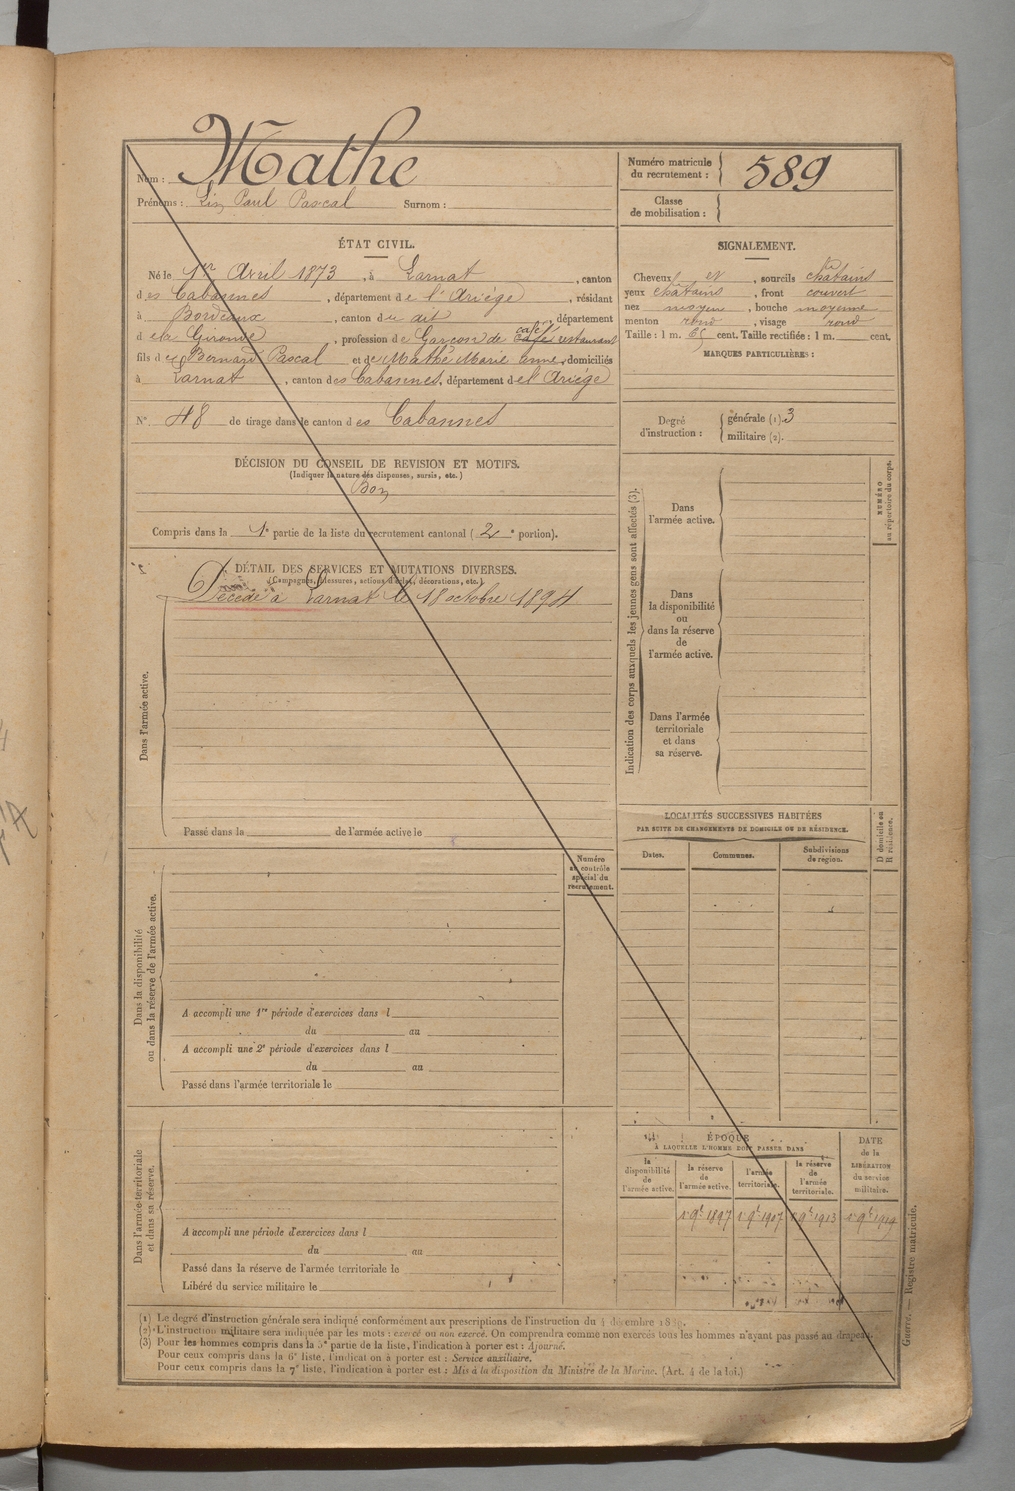 Nom : Mathe
Prénoms : Paul Pascal Surnom :
Numéro matricule du recrutement : 589
Classe de mobilisation :
ÉTAT CIVIL.
Né le 1er Avril 1873, à Larnat, canton
des Cabannes, département de l'Ariège, résidant
à Bordeaux, canton du dit, département
de la Gironde, profession de Garçon de café café restaurant
fils de Bernard Pascal et de Mathe Marie anne, domiciliés
à Larnat, canton des Cabannes, département de l'Ariège
N° 48 de tirage dans le canton des Cabannes
SIGNALEMENT.
Cheveux et, sourcils châtains
yeux châtains, front couvert
nez moyen, bouche moyenne
menton rond, visage rond
Taille : 1 m. 65 cent. Taille rectifiée : 1 m. cent.
MARQUES PARTICULIÈRES :
Degré d'instruction : générale (1) 3
militaire (2).
DÉCISION DU CONSEIL DE REVISION ET MOTIFS.
(Indiquer la nature des dispenses, sursis, etc.)
Bon
Compris dans la 1e partie de la liste du recrutement cantonal (2e portion).
DÉTAIL DES SERVICES ET MUTATIONS DIVERSES.
(Campagnes, blessures, actions d'éclat, décorations, etc.)
Décédé à Larnat le 18 octobre 1894
Dans l'armée active.
Passé dans la de l'armée active le
Indication des corps auxquels les jeunes gens sont affectés (3).
Dans l'armée active.
Dans la disponibilité ou dans la réserve de l'armée active.
Dans l'armée territoriale et dans sa réserve.
NUMÉRO au répertoire du corps.
LOCALITÉS SUCCESSIVES HABITÉES
PAR SUITE DE CHANGEMENTS DE DOMICILE OU DE RÉSIDENCE.
Dates. Communes. Subdivisions de région. D domicile ou R résidence.
Numéro au contrôle spécial du recrutement.
Dans la disponibilité ou dans la réserve de l'armée active.
A accompli une 1re période d'exercices dans l
du au
A accompli une 2e période d'exercices dans l
du au
Passé dans l'armée territoriale le
Dans l'armée territoriale et dans sa réserve.
A accompli une période d'exercices dans l
du au
Passé dans la réserve de l'armée territoriale le
Libéré du service militaire le
ÉPOQUE
À LAQUELLE L'HOMME DOIT PASSER DANS
la disponibilité de l'armée active.
la réserve de l'armée active.
l'armée territoriale.
la réserve de l'armée territoriale.
DATE de la LIBÉRATION du service militaire.
1 9e 1897 1 9e 1907 1 9e 1913 1 9e 1919
(1) Le degré d'instruction générale sera indiqué conformément aux prescriptions de l'instruction du 4 décembre
(2) L'instruction militaire sera indiquée par les mots : exercé ou non exercé. On comprendra comme non exercés tous les hommes n'ayant pas passé au drapeau.
(3) Pour les hommes compris dans la 5e partie de la liste, l'indication à porter est : Ajourné.
Pour ceux compris dans la 6e liste, l'indication à porter est : Service auxiliaire.
Pour ceux compris dans la 7e liste, l'indication à porter est : Mis à la disposition du Ministre de la Marine. (Art. 4 de la loi.)
Guerre. — Registre matricule.